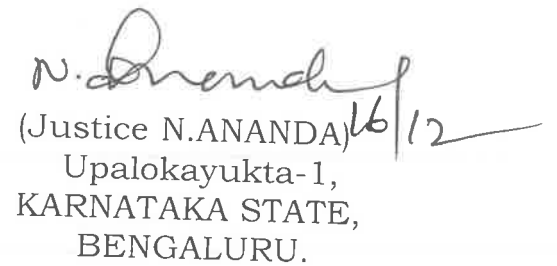 N. Ananda
(Justice N.ANANDA) 16/12
Upalokayukta-1,
KARNATAKA STATE,
BENGALURU.